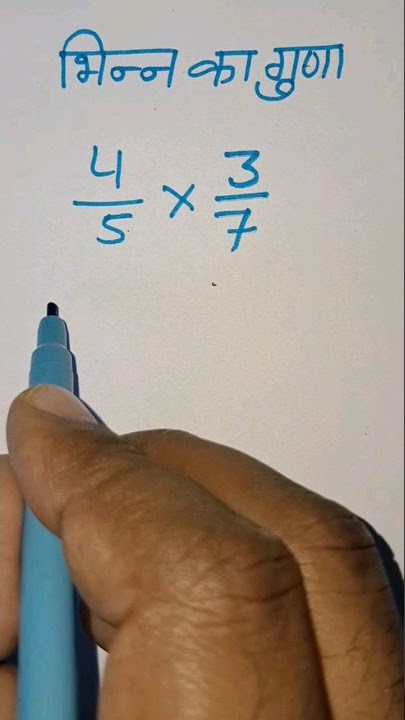 भिन्न का गुणा
4/5 × 3/7